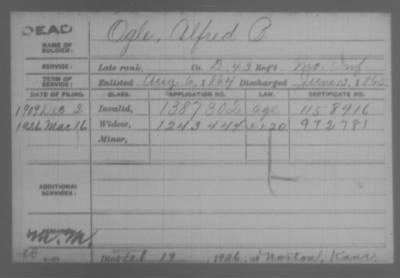 DEAD
NAME OF SOLDIER: Ogle, Alfred P.
SERVICE: Late rank, Co. D, 43 Reg't Mo. Inf
TERM OF SERVICE: Enlisted Aug. 6, 1864 Discharged June 13, 1865
DATE OF FILING. CLASS. APPLICATION NO. LAW. CERTIFICATE NO.
Invalid, 1387302 age 1158916
1926 Mar 16 Widow, 1243444 1920 972781
Minor,
ADDITIONAL SERVICES:
REMARKS:
M.M.
Died Feb 19, 1926, at Norton, Kans.